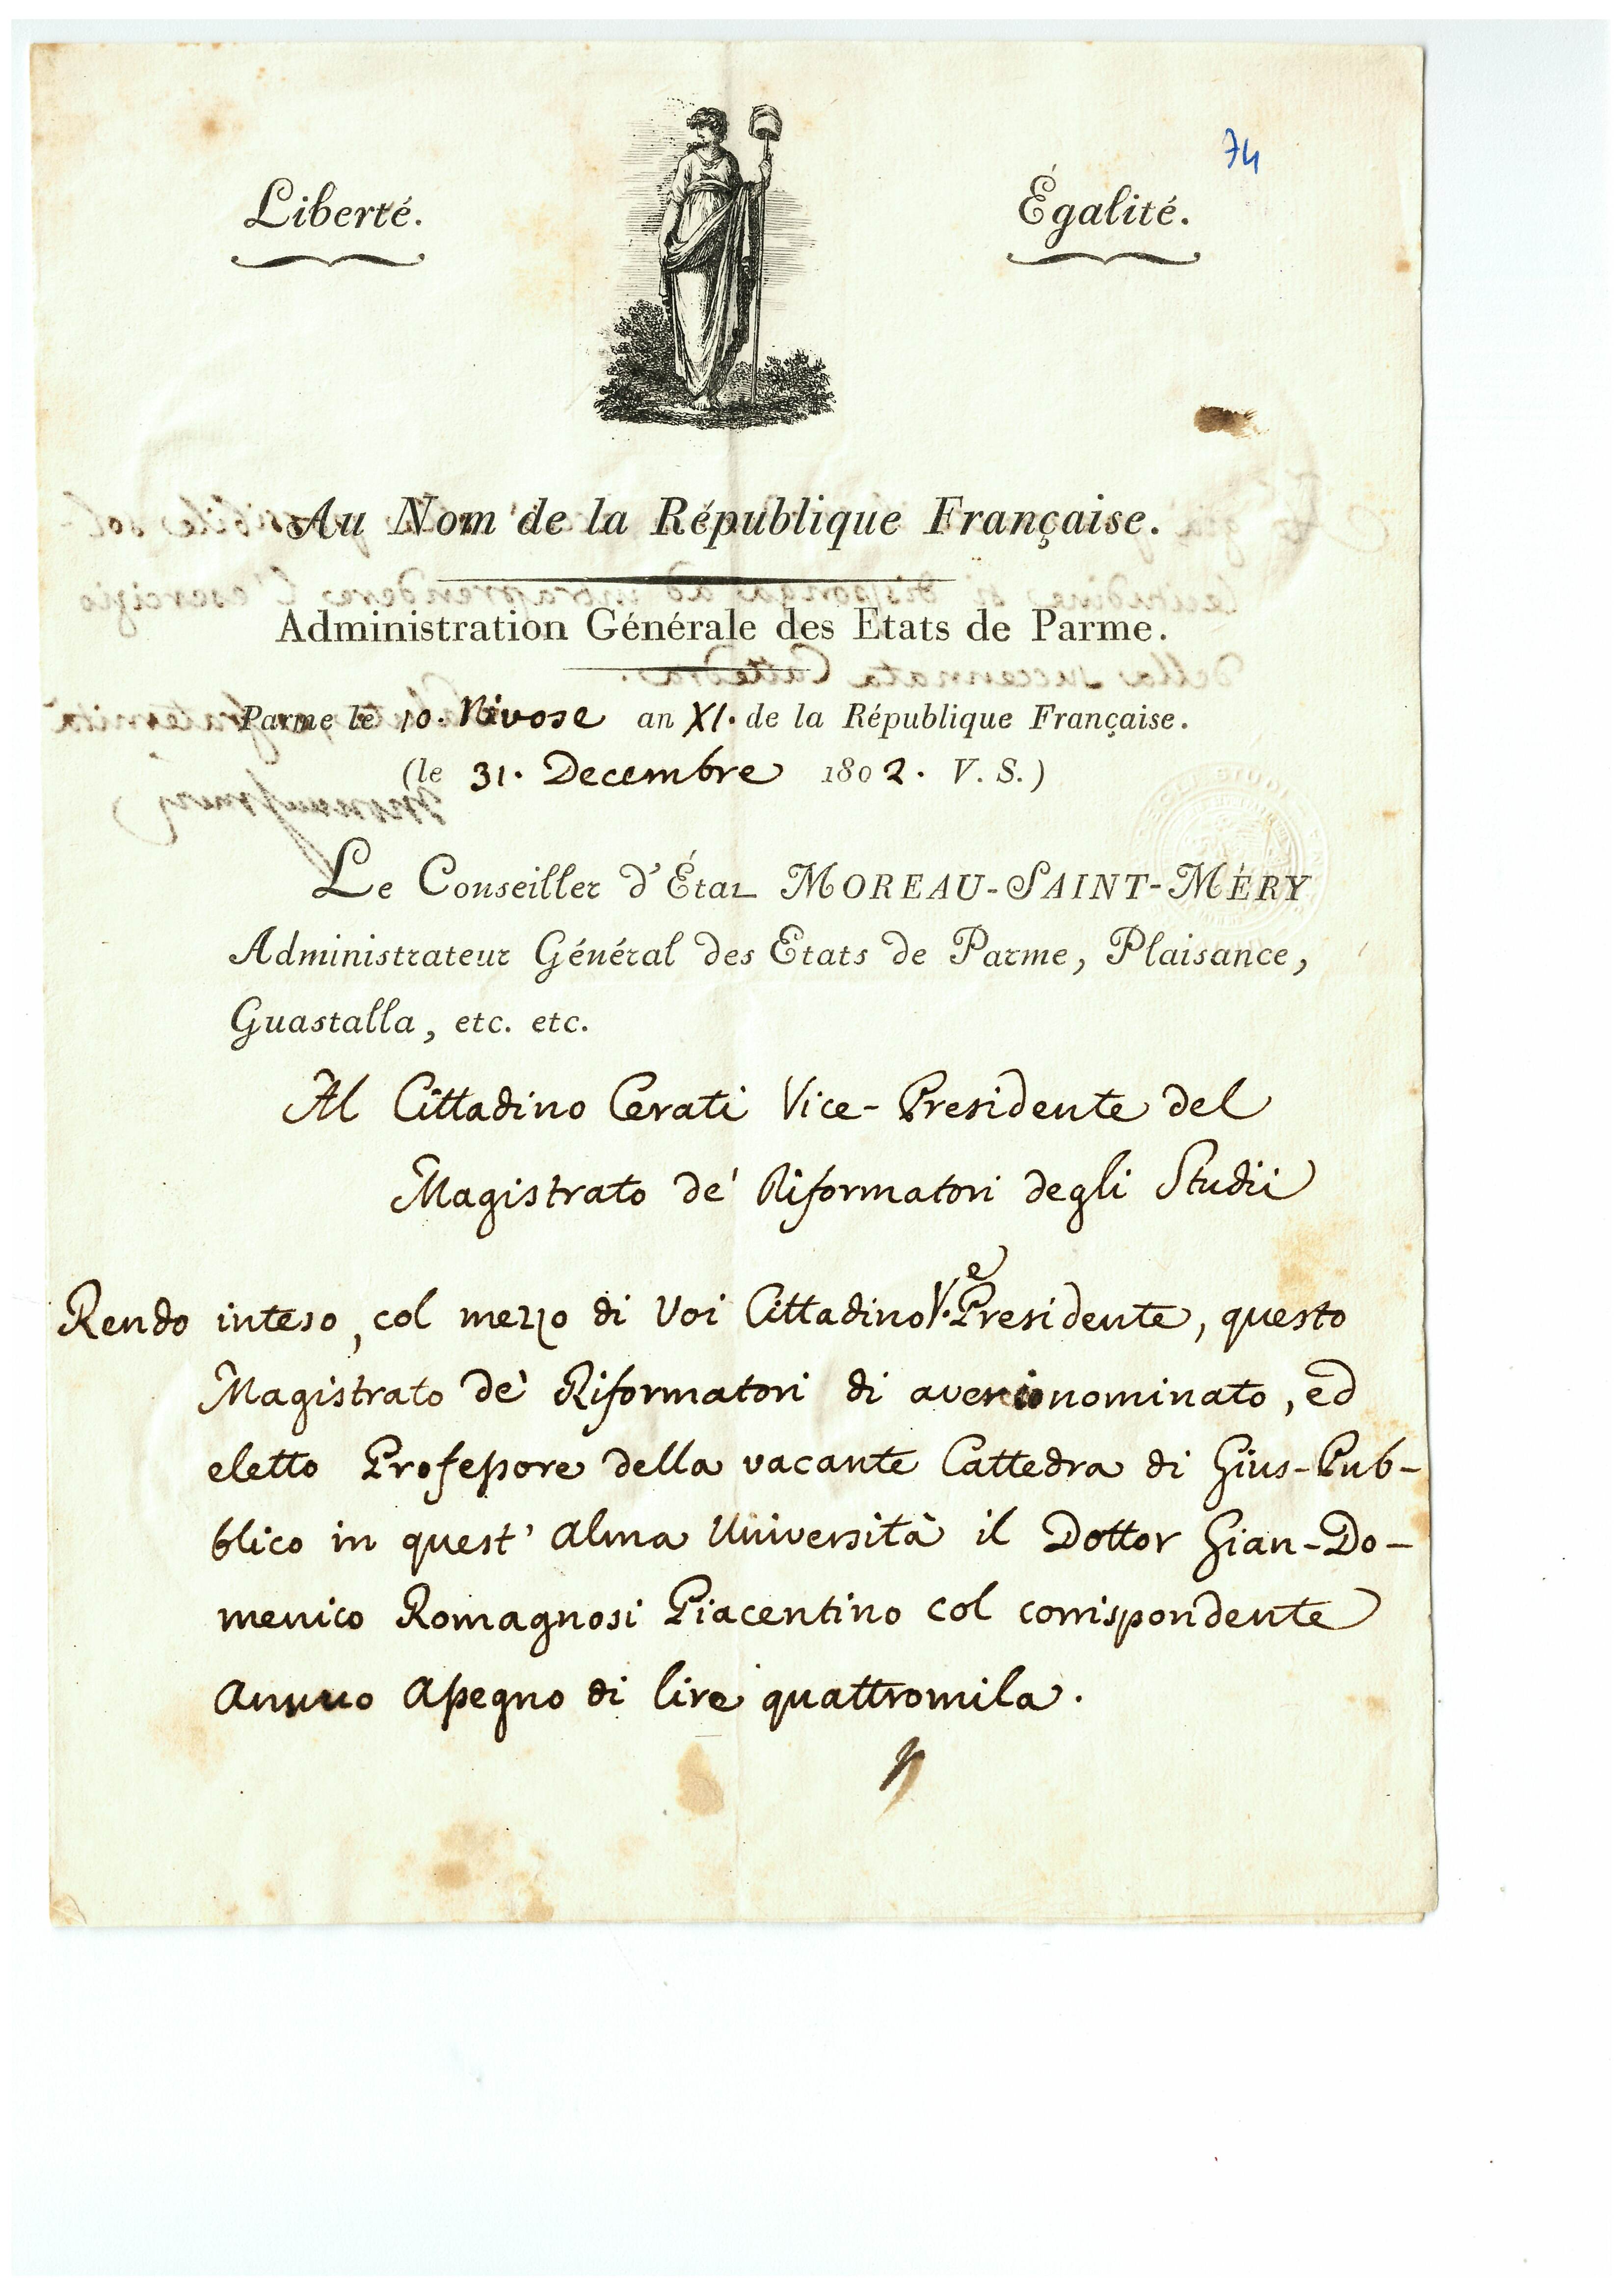 74
Liberté. Égalité.
Au Nom de la République Française.
Administration Générale des Etats de Parme.
Parme le 10. Nivose an XI. de la République Française.
(le 31. Decembre 1802. V. S.)
Le Conseiller d'État MOREAU-SAINT-MÉRY
Administrateur Général des Etats de Parme, Plaisance,
Guastalla, etc. etc.
Al Cittadino Cerati Vice-Presidente del
Magistrato de' Riformatori degli Studii
Rendo inteso, col mezzo di Voi Cittadino V.e Presidente, questo
Magistrato de' Riformatori di aver io nominato, ed
eletto Professore della vacante Cattedra di Gius-Pub-
blico in quest' Alma Università il Dottor Gian-Do-
menico Romagnosi Piacentino col corrispondente
annuo assegno di lire quattromila.